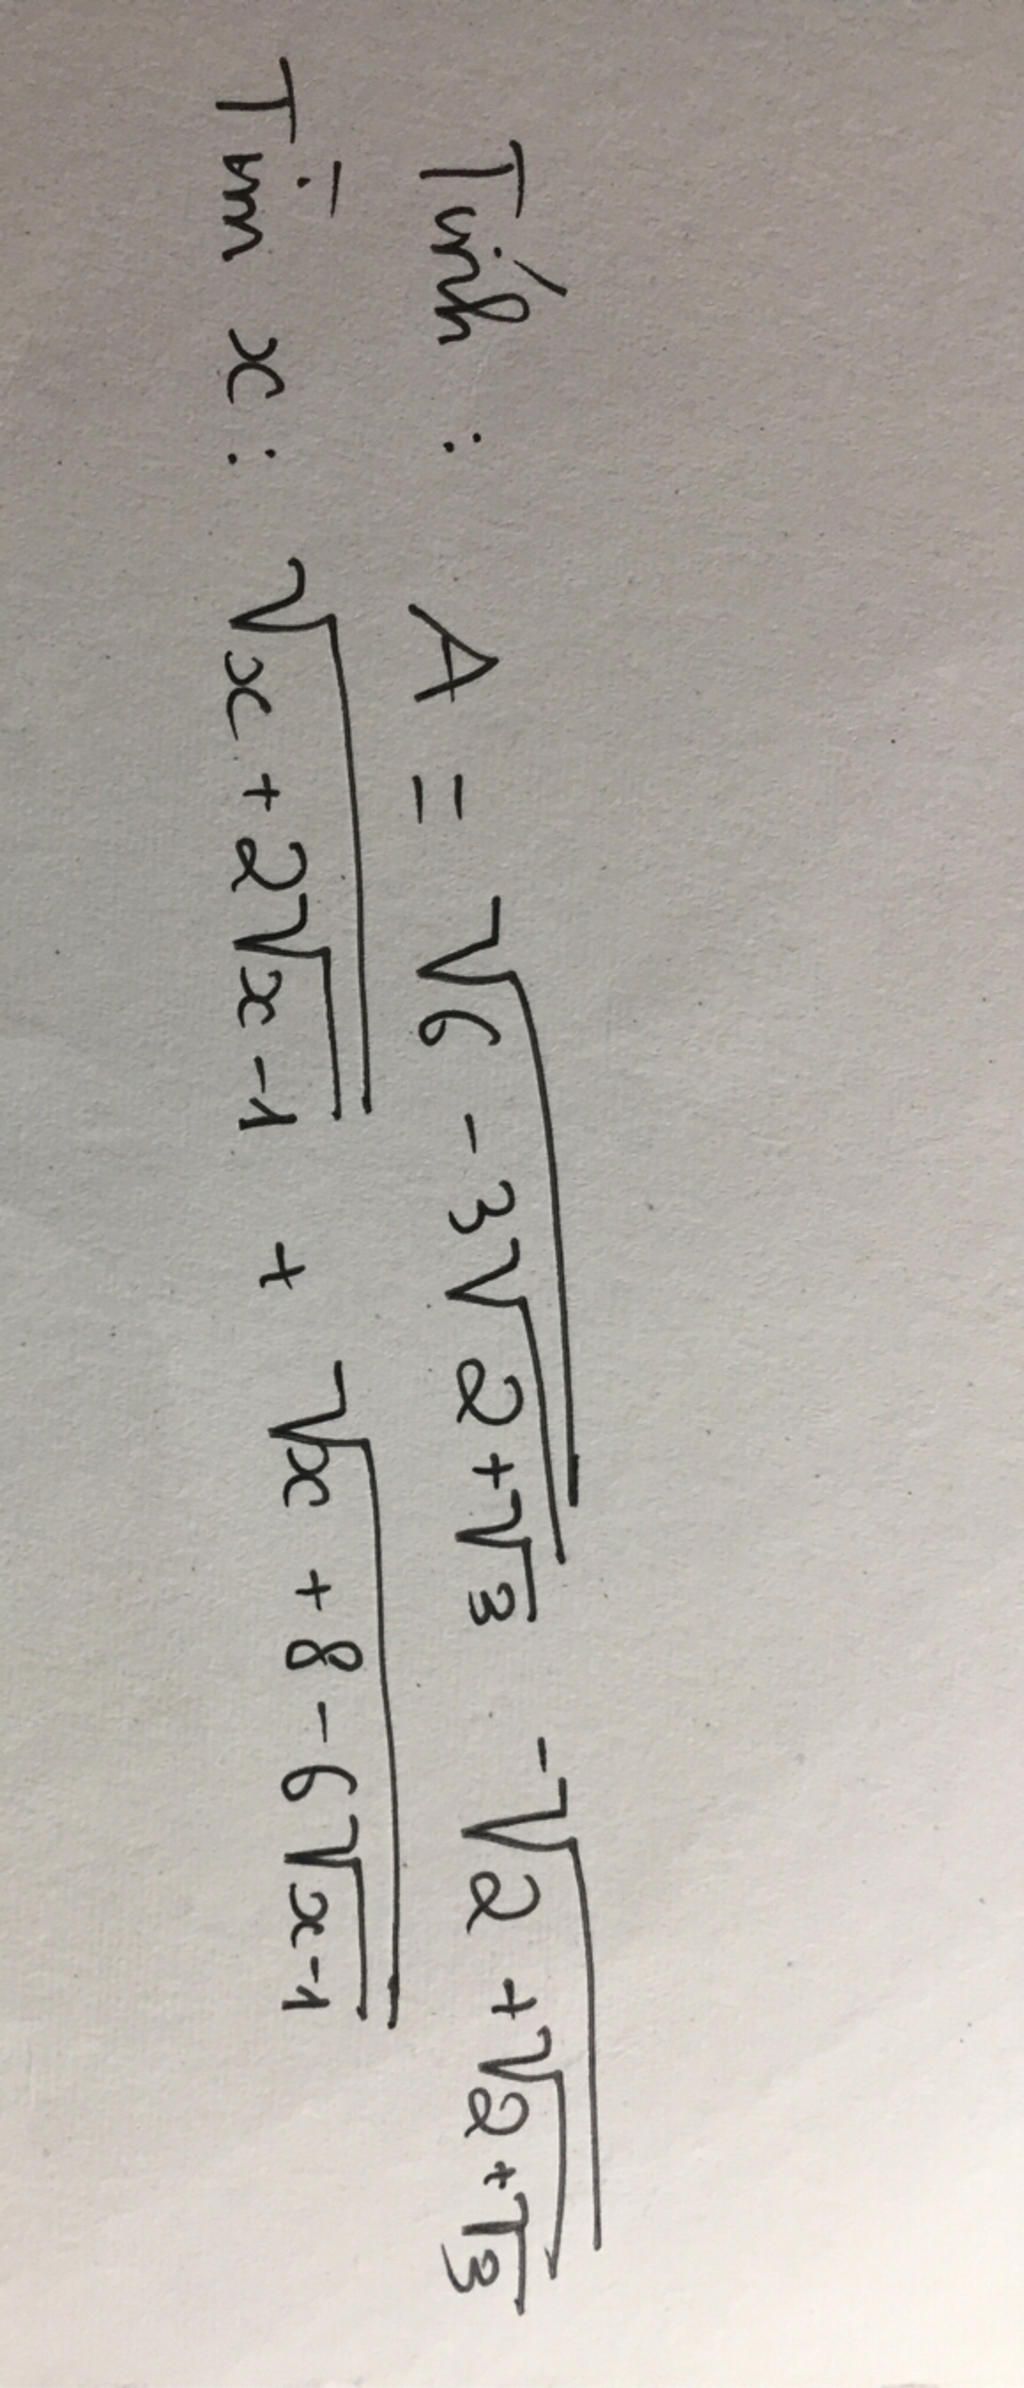 Tính : A = √(6 - 3√(2+√3)) - √(2 + √(2+√3))
Tìm x : √(x + 2√(x-1)) + √(x + 8 - 6√(x-1))